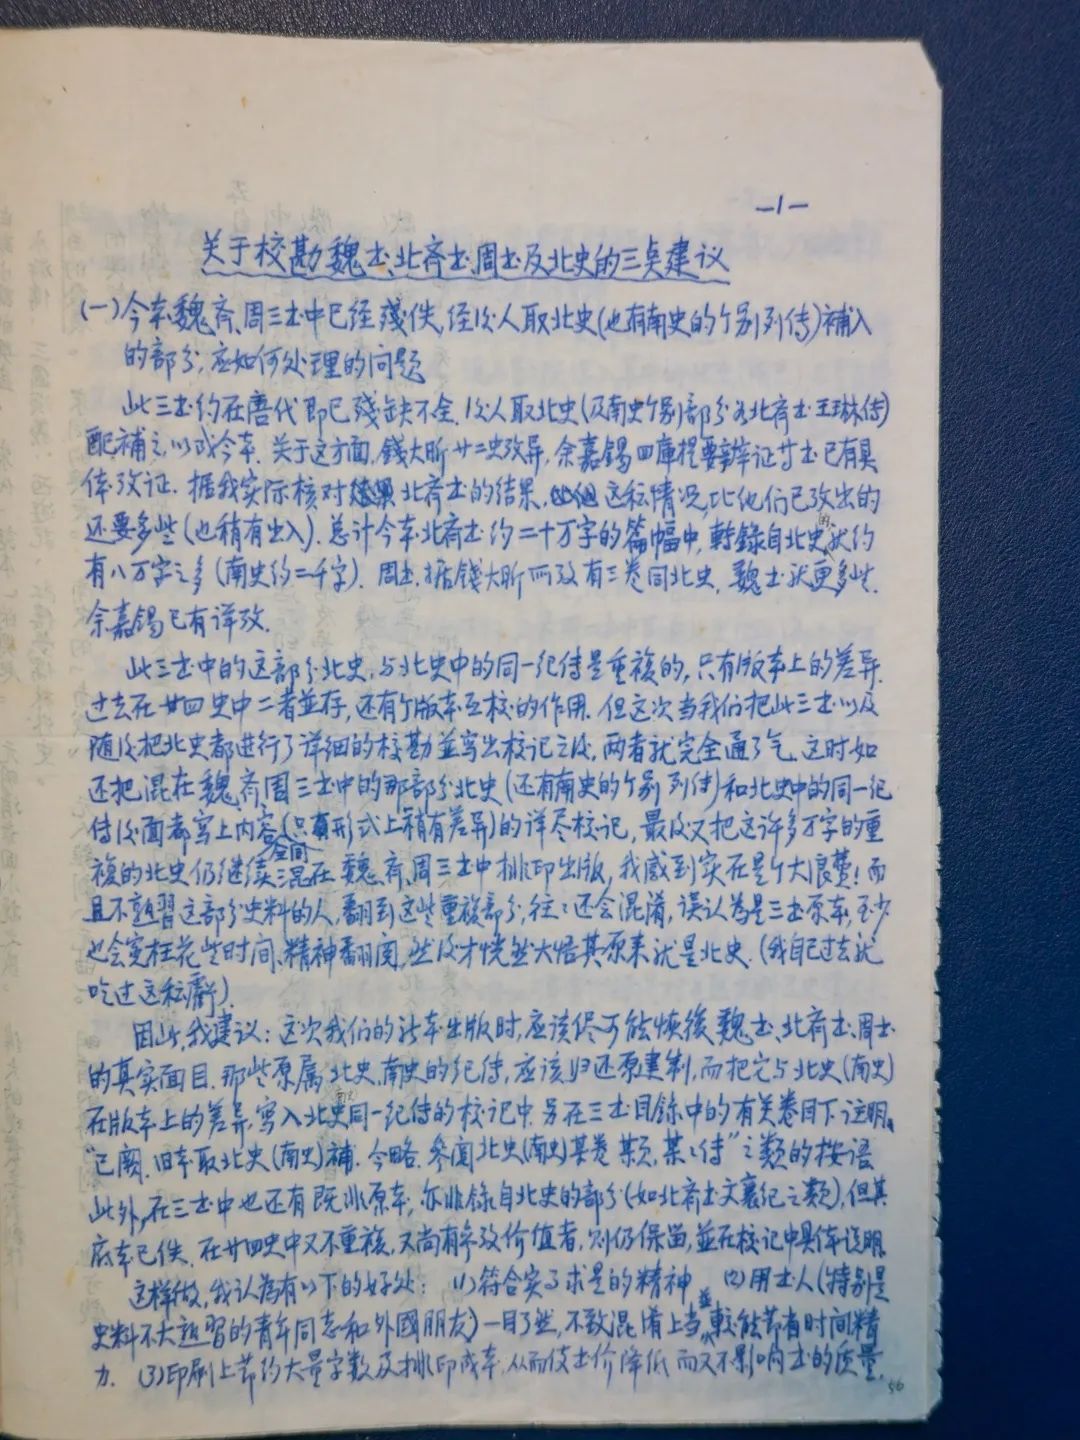 —1—
关于校勘魏书、北齐书、周书及北史的三点建议
(一)今本魏、齐、周三书中已经残佚,经后人取北史(也有南史的个别列传)補入
的部分,应如何处理的问题
此三书约在唐代即已残缺不全.后人取北史(及南史个别部分如北齐书王琳传)
配補之以成今本.关于这方面,錢大昕廿二史攷异,余嘉锡四庫提要辩证廿书已有具
体攷证.据我实际核对北齐书的结果,这种情况,比他们已攷出的
还要多些(也稍有出入).总计今本北齐书约二十万字的篇幅中,轉錄自北史的就约
有八万字之多(南史约二千字).周书,据钱大昕所攷有三卷同北史,魏书就更多些.
余嘉锡已有详攷.
此三书中的这部分北史,与北史中的同一纪传是重複的,只有版本上的差异.
过去在廿四史中二者並存,还有个版本互校的作用.但这次当我们把此三书以及
随后把北史都进行了详细的校勘並写出校记之后,两者就完全通了气.这时如
还把混在魏、齐、周三书中的那部分北史(还有南史的个别列传)和北史中的同一纪
传后面都写上内容全同(只有形式上稍有差异)的详尽校记,最后又把这许多万字的重
複的北史仍继续混在魏、齐、周三书中排印出版,我感到实在是个大浪费!而
且不熟習这部分史料的人,翻到这些重複部分,往:还会混淆,误认为是三书原本,至少
也会冤枉花些时间、精神翻阅,然后才恍然大悟其原来就是北史.(我自己过去就
吃过这种虧).
因此,我建议:这次我们的新本出版时,应该尽可能恢復魏书、北齐书、周书
的真实面目.那些原属北史、南史的纪传,应该归还原建制,而把它与北史(南史)
在版本上的差异,写入北史南史同一纪传的校记中.另在三书目録中的有关卷目下注明:
"已阙.旧本取北史(南史)補.今略.参阅北史(南史)某卷某頁,某:传"之类的按语
此外,在三书中也还有既非原本,亦非錄自北史的部分(如北齐书文襄纪之类),但其
底本已佚.在廿四史中又不重複,又尚有参攷价值者,则仍保留,並在校记中具体说明.
这样做,我认为有以下的好处:(1)符合实事求是的精神 (2)用书人(特别是
史料不大熟習的青年同志和外國朋友)一目了然,不致混淆上当,並較能节省时间精
力.(3)印刷上节约大量字数及排印成本,从而使书价降低,而又不影响书的质量.
56